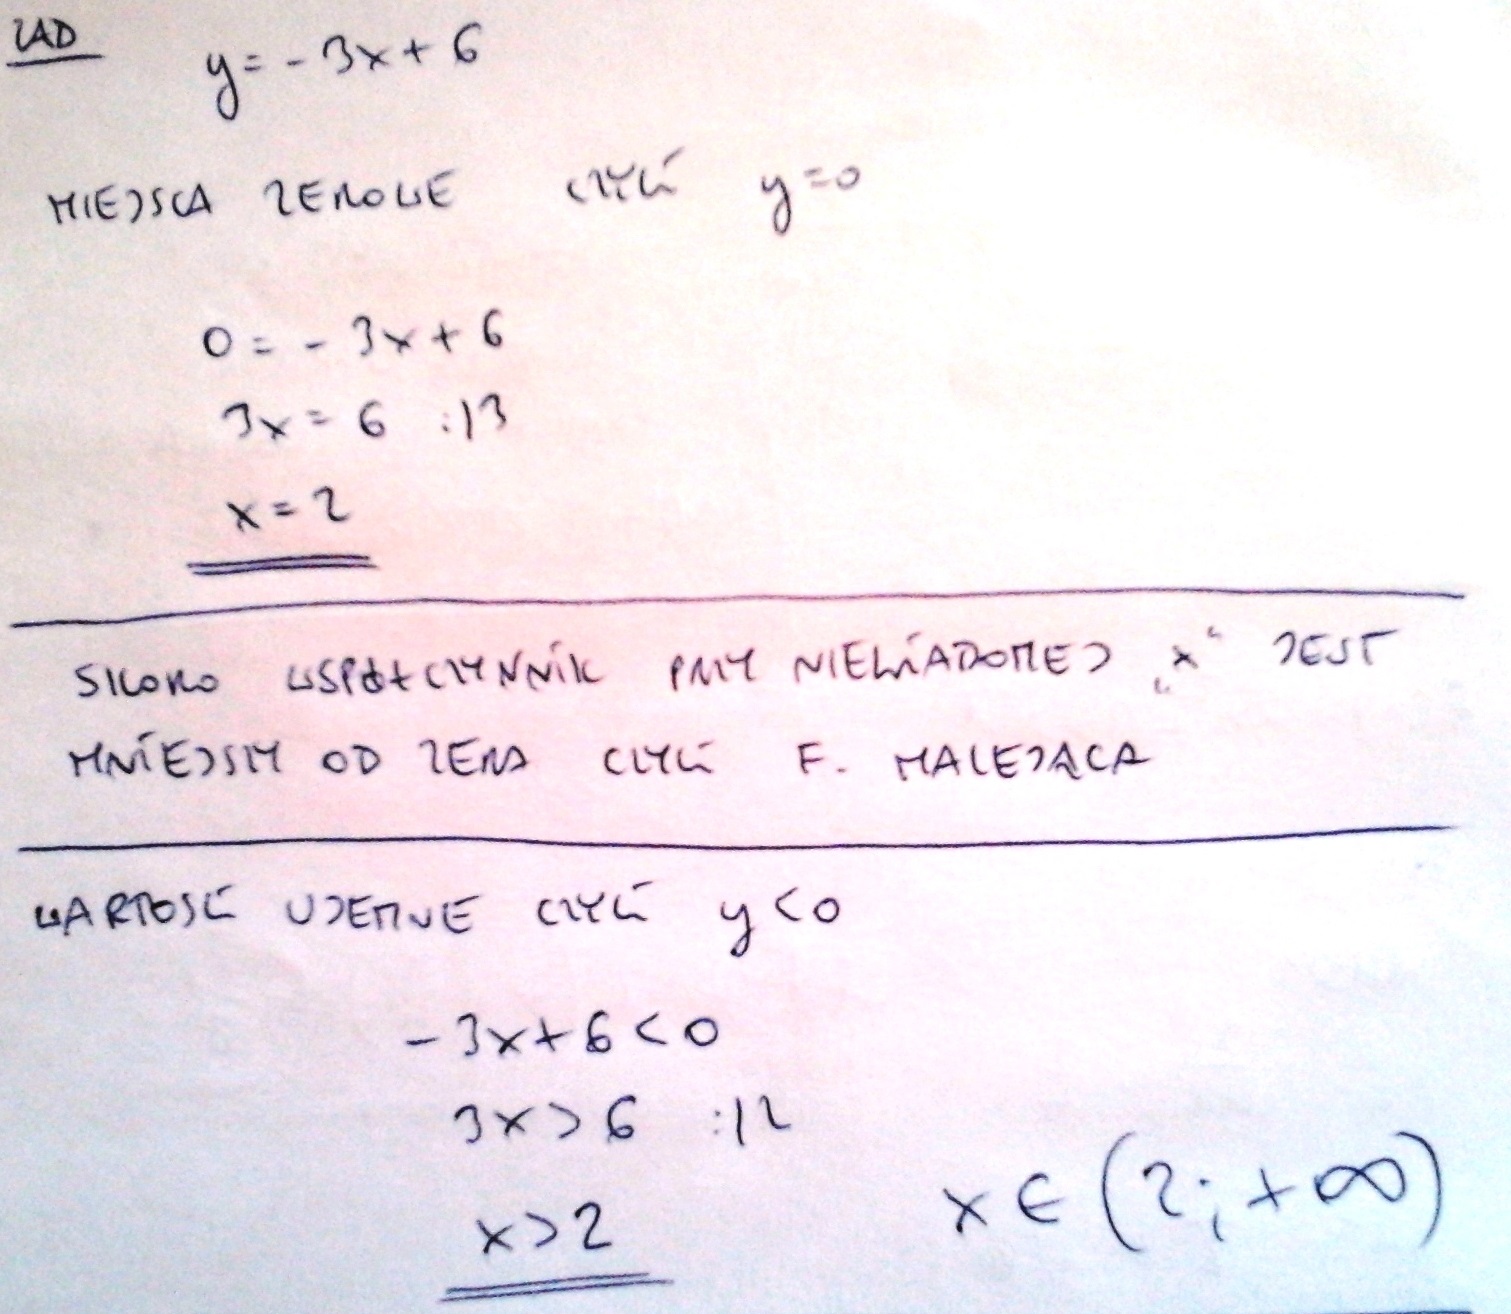 ZAD
y = - 3x + 6
MIEJSCA ZEROWE CZYLI y=0
0 = - 3x + 6
3x = 6 :|3
x = 2
SKORO WSPÓŁCZYNNIK PRZY NIEWIADOMEJ „x“ JEST
MNIEJSZY OD ZERA CZYLI F. MALEJĄCA
WARTOŚĆ UJEMNE CZYLI y<0
- 3x+6<0
3x>6 :|2
x>2
x ∈ (2; +∞)